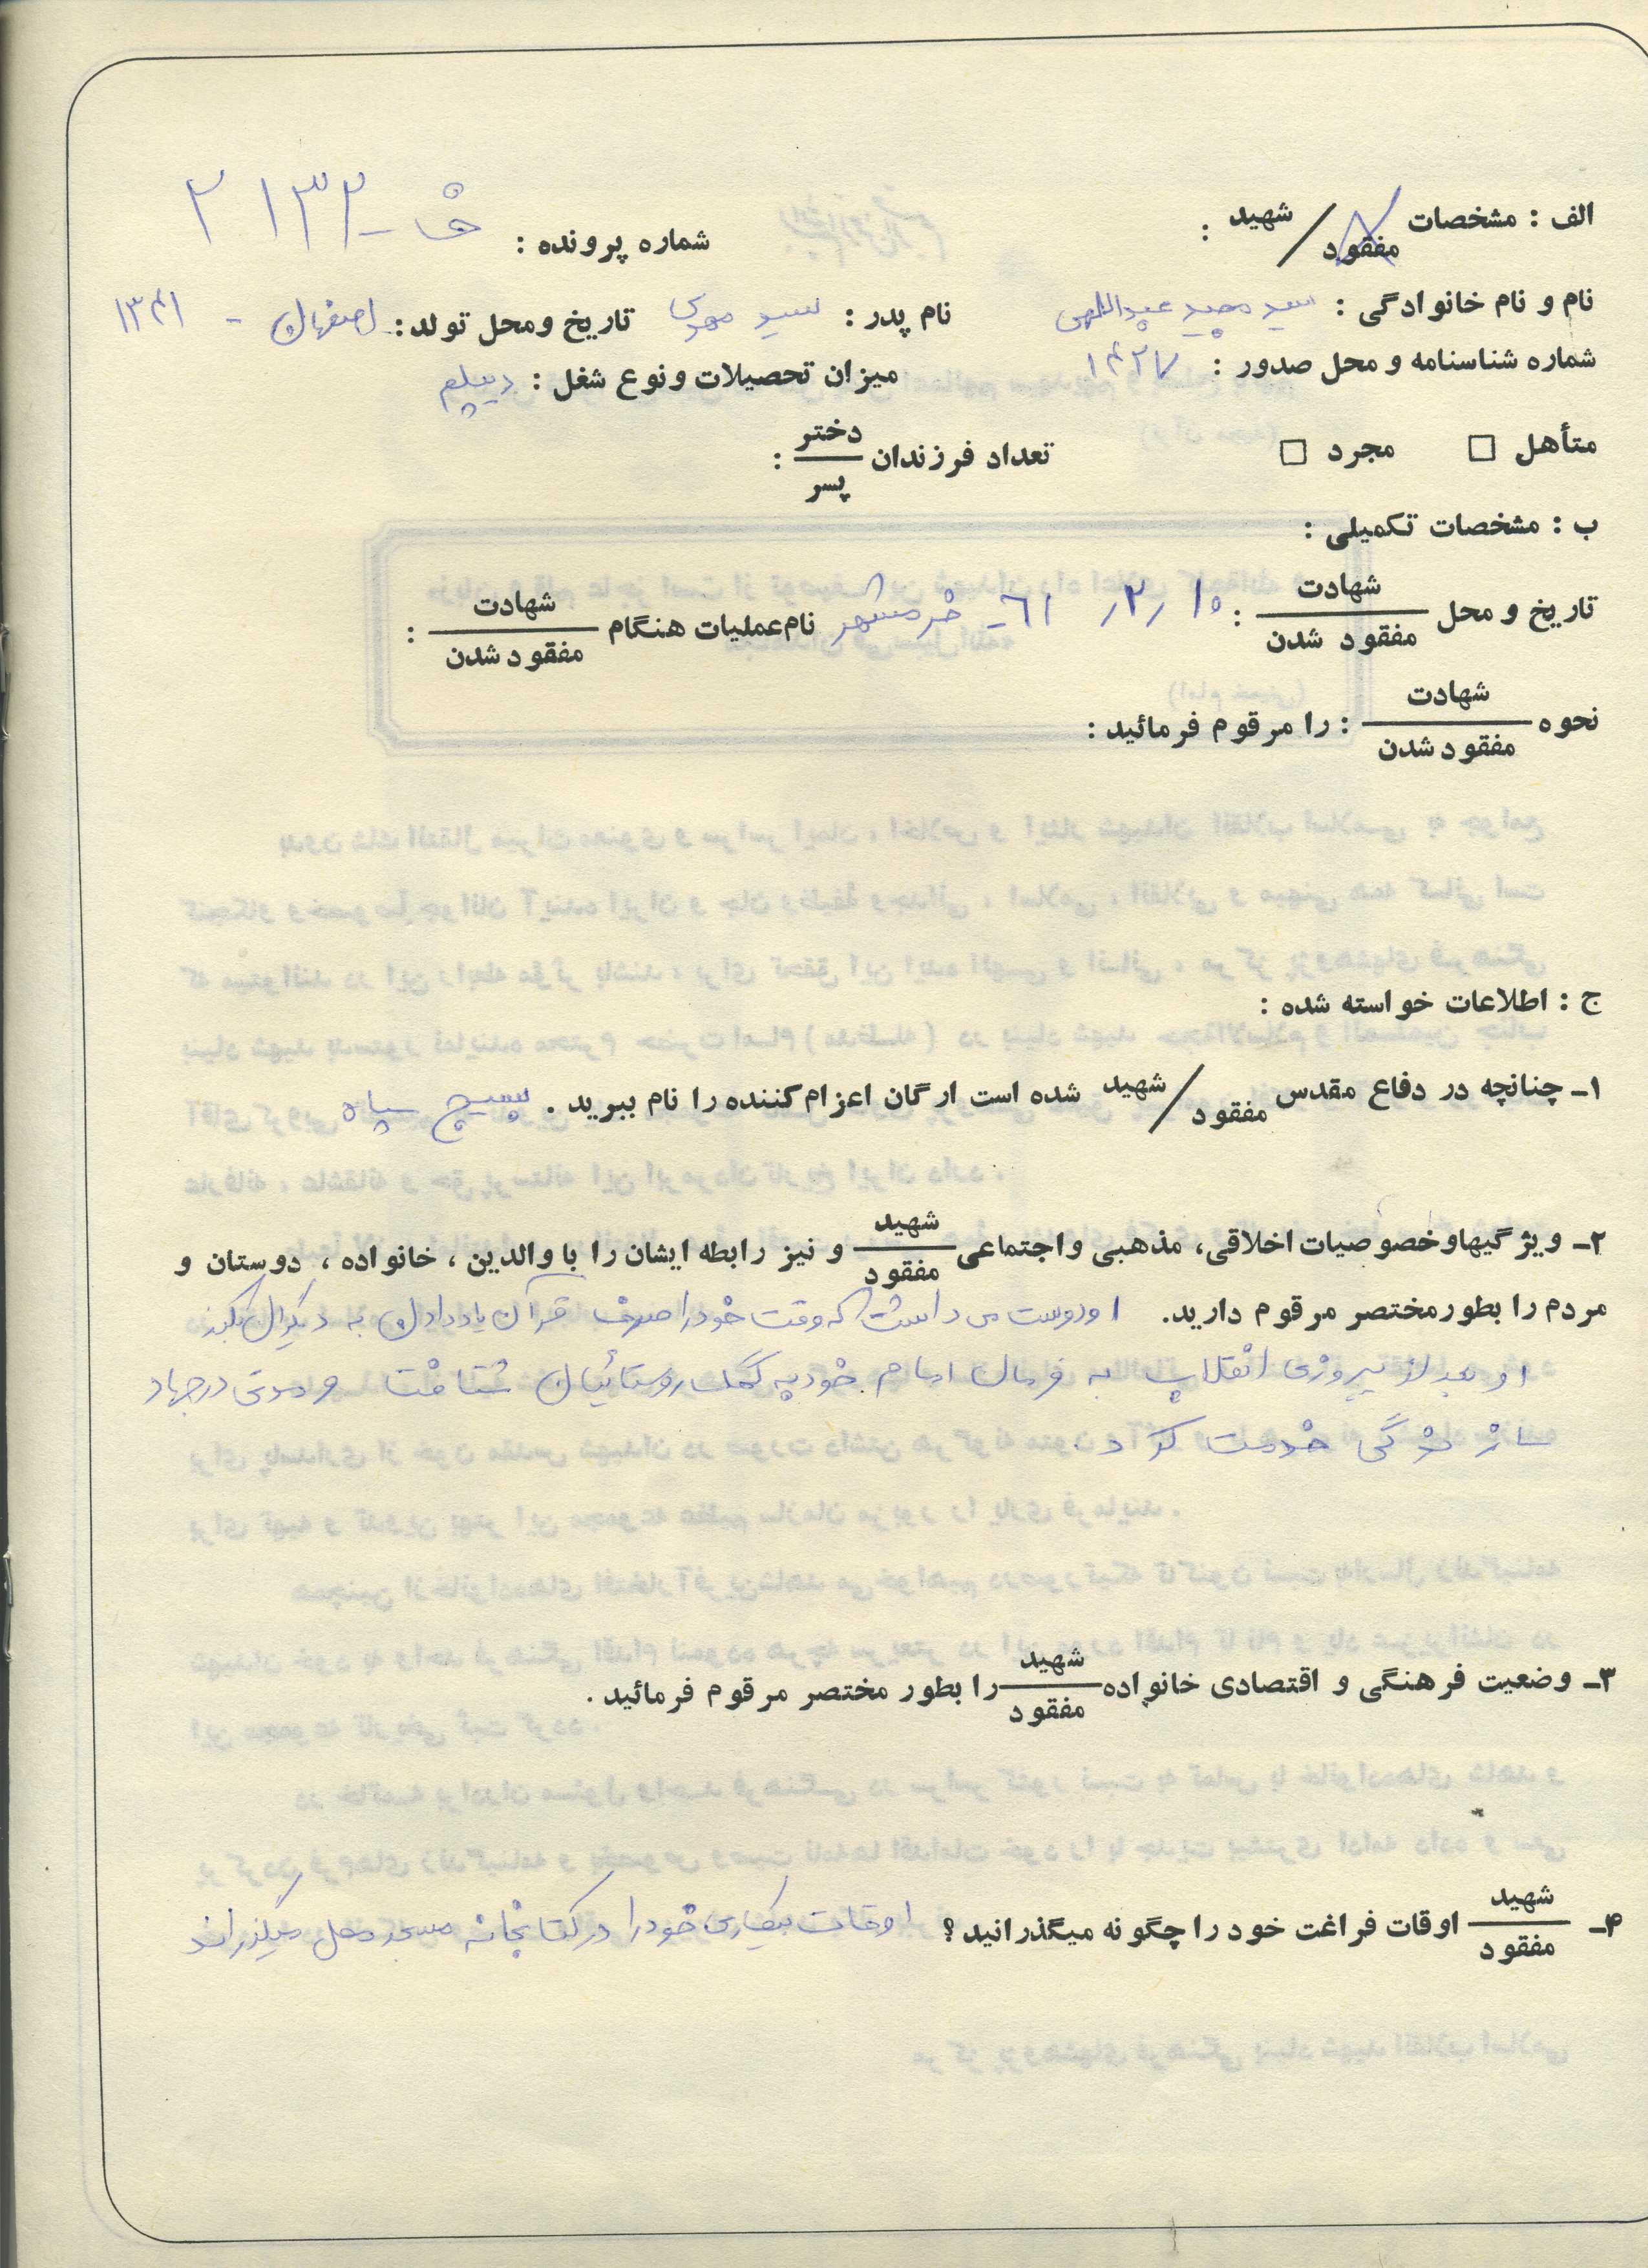 الف : مشخصات شهید / مفقود :
شماره پرونده : خ - ۲۱۳۲
نام و نام خانوادگی : سید مجید عبداللهی نام پدر : سید مهدی تاریخ ومحل تولد : اصفهان - ۱۳۴۱
شماره شناسنامه و محل صدور : ۱۴۲۷ میزان تحصیلات ونوع شغل : دیپلم
متأهل □ مجرد □ تعداد فرزندان دختر / پسر :
ب : مشخصات تکمیلی :
تاریخ و محل شهادت / مفقود شدن : ۱۰ ,۲, ۶۱ - خرمشهر نام عملیات هنگام شهادت / مفقود شدن :
نحوه شهادت / مفقود شدن : را مرقوم فرمائید :
ج : اطلاعات خواسته شده :
۱ـ چنانچه در دفاع مقدس شهید / مفقود شده است ارگان اعزام کننده را نام ببرید . بسیج سپاه
۲ـ ویژگیهاوخصوصیات اخلاقی، مذهبی واجتماعی شهید / مفقود و نیز رابطه ایشان را با والدین ، خانواده ، دوستان و
مردم را بطورمختصر مرقوم دارید. او دوست می داشت که وقت خود را صرف قرآن یاد دادن به دیگران بکند
او بعد از پیروزی انقلاب به فرمان امام خود به کمک روستائیان شتافت و مدتی در جهاد
سازندگی خدمت کرد .
۳ـ وضعیت فرهنگی و اقتصادی خانواده شهید / مفقود را بطور مختصر مرقوم فرمائید .
۴ـ شهید / مفقود اوقات فراغت خود را چگونه میگذرانید ؟ اوقات بیکاری خود را در کتابخانه مسجد محل میگذراند